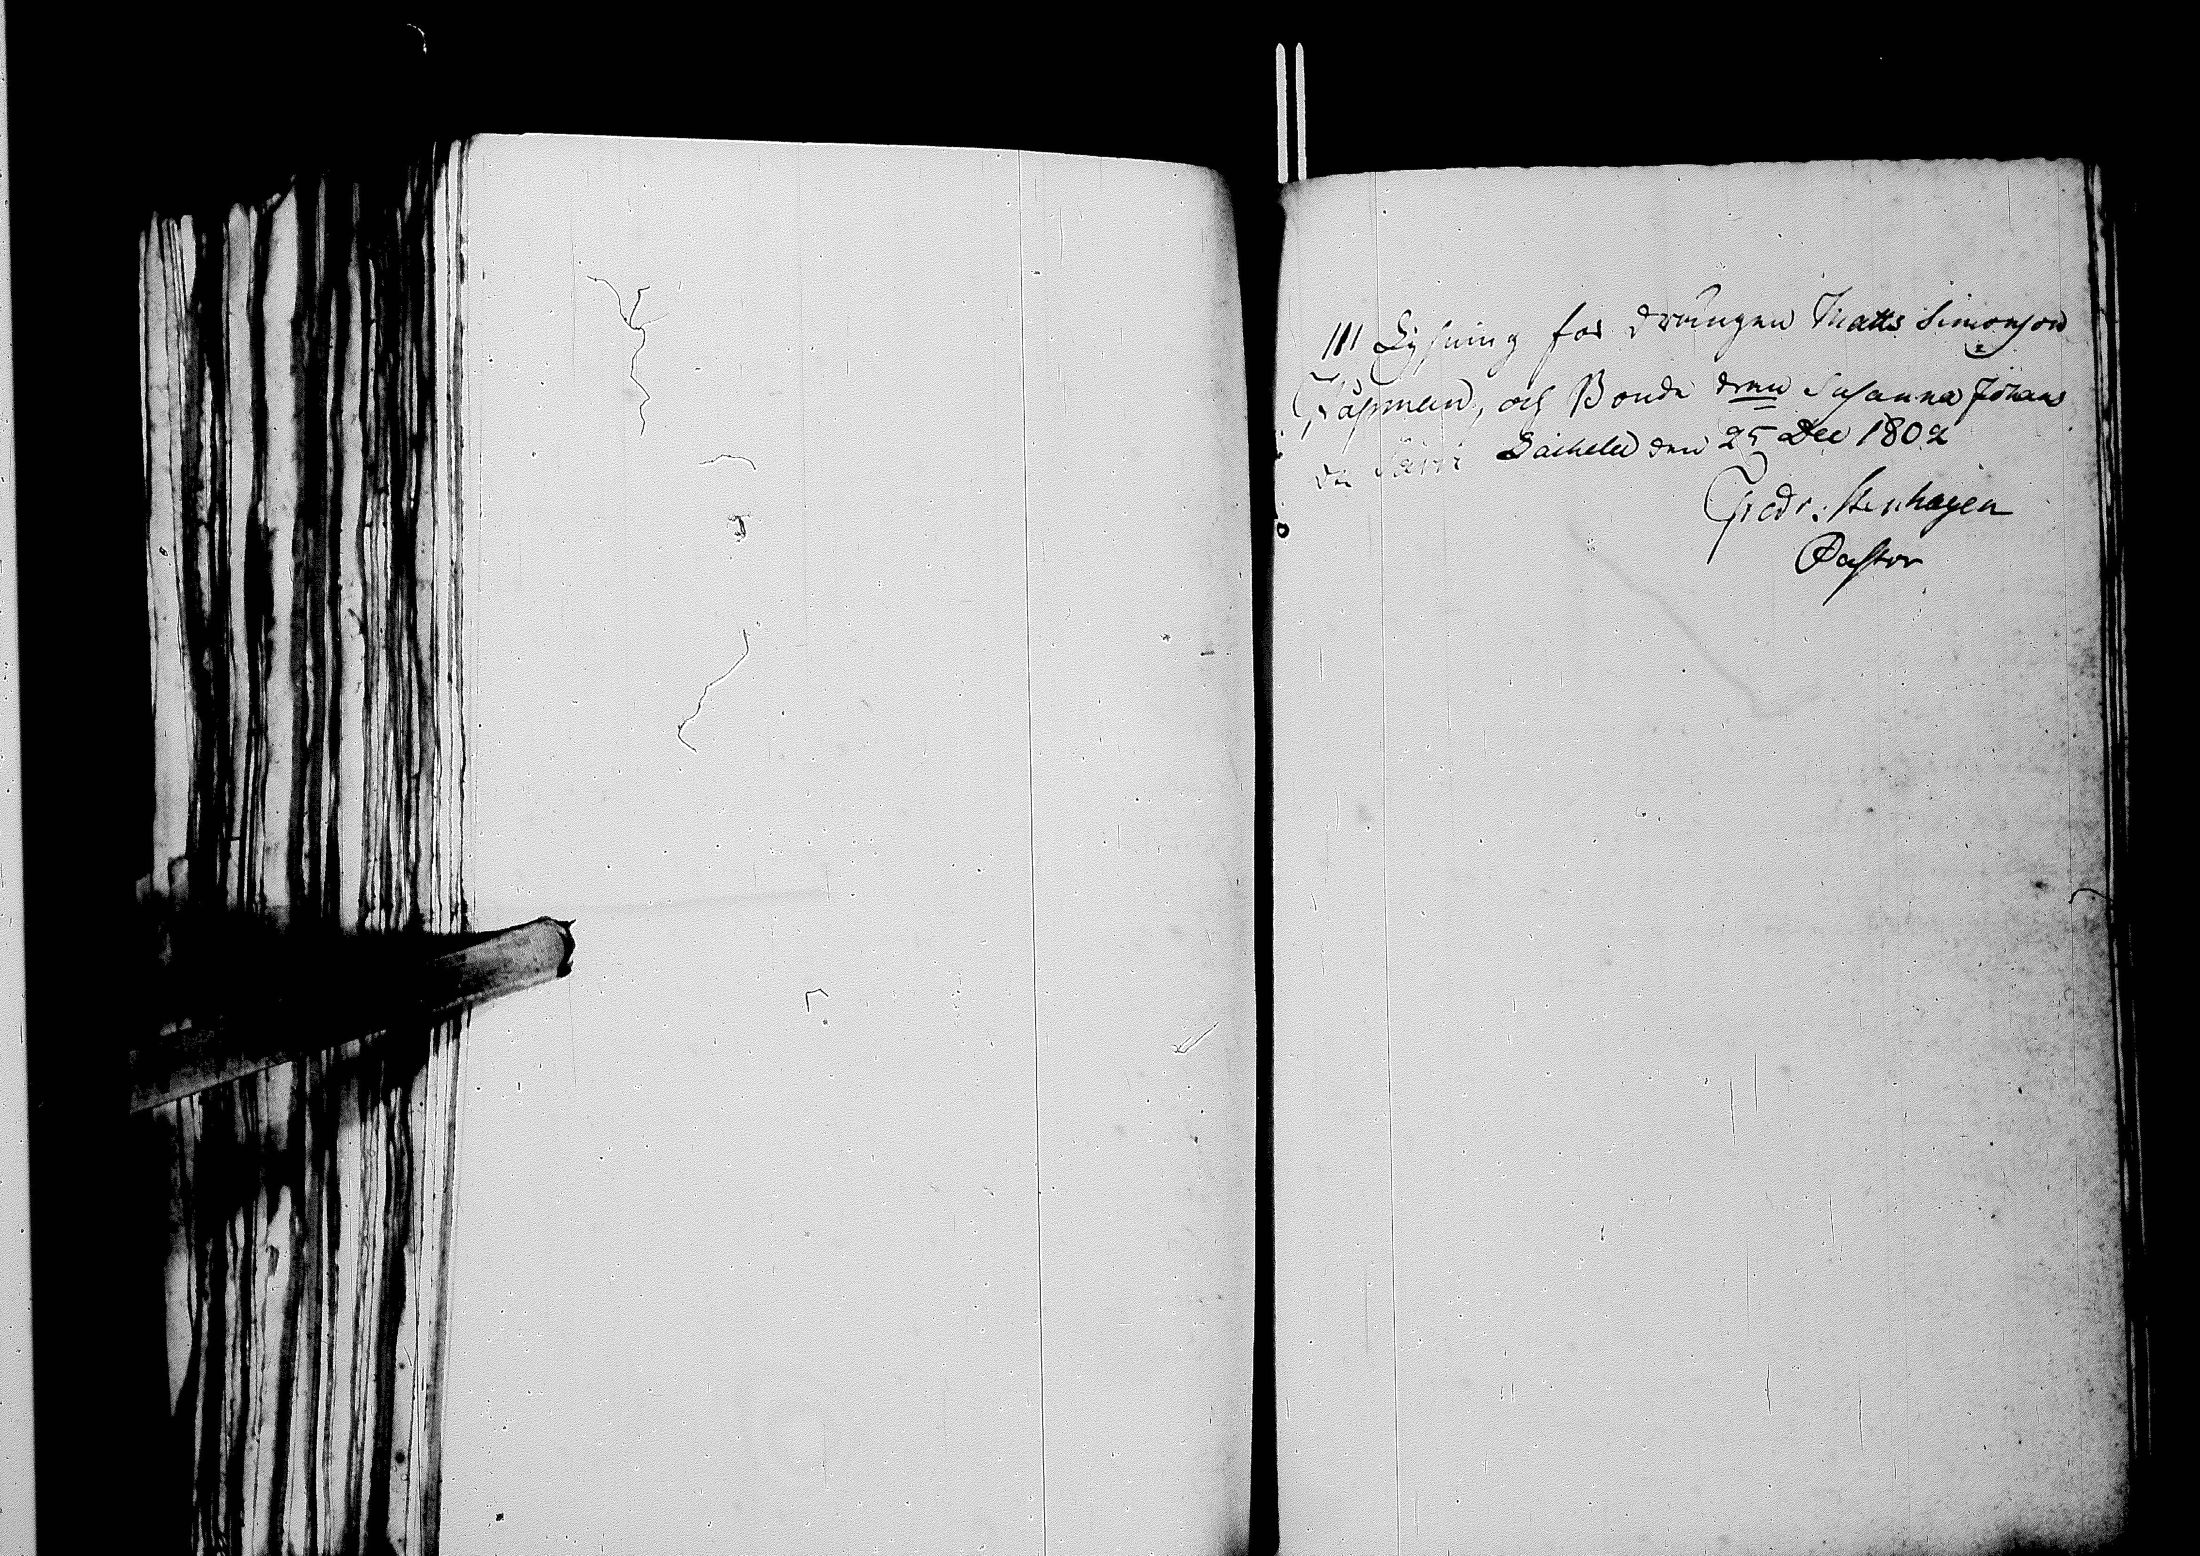 III Lysning för drängen Matts Simonson
och Bonde dren Susanna Johans
d:r den 25 Dec 1802
Fredr: Stenhagen
Pastor